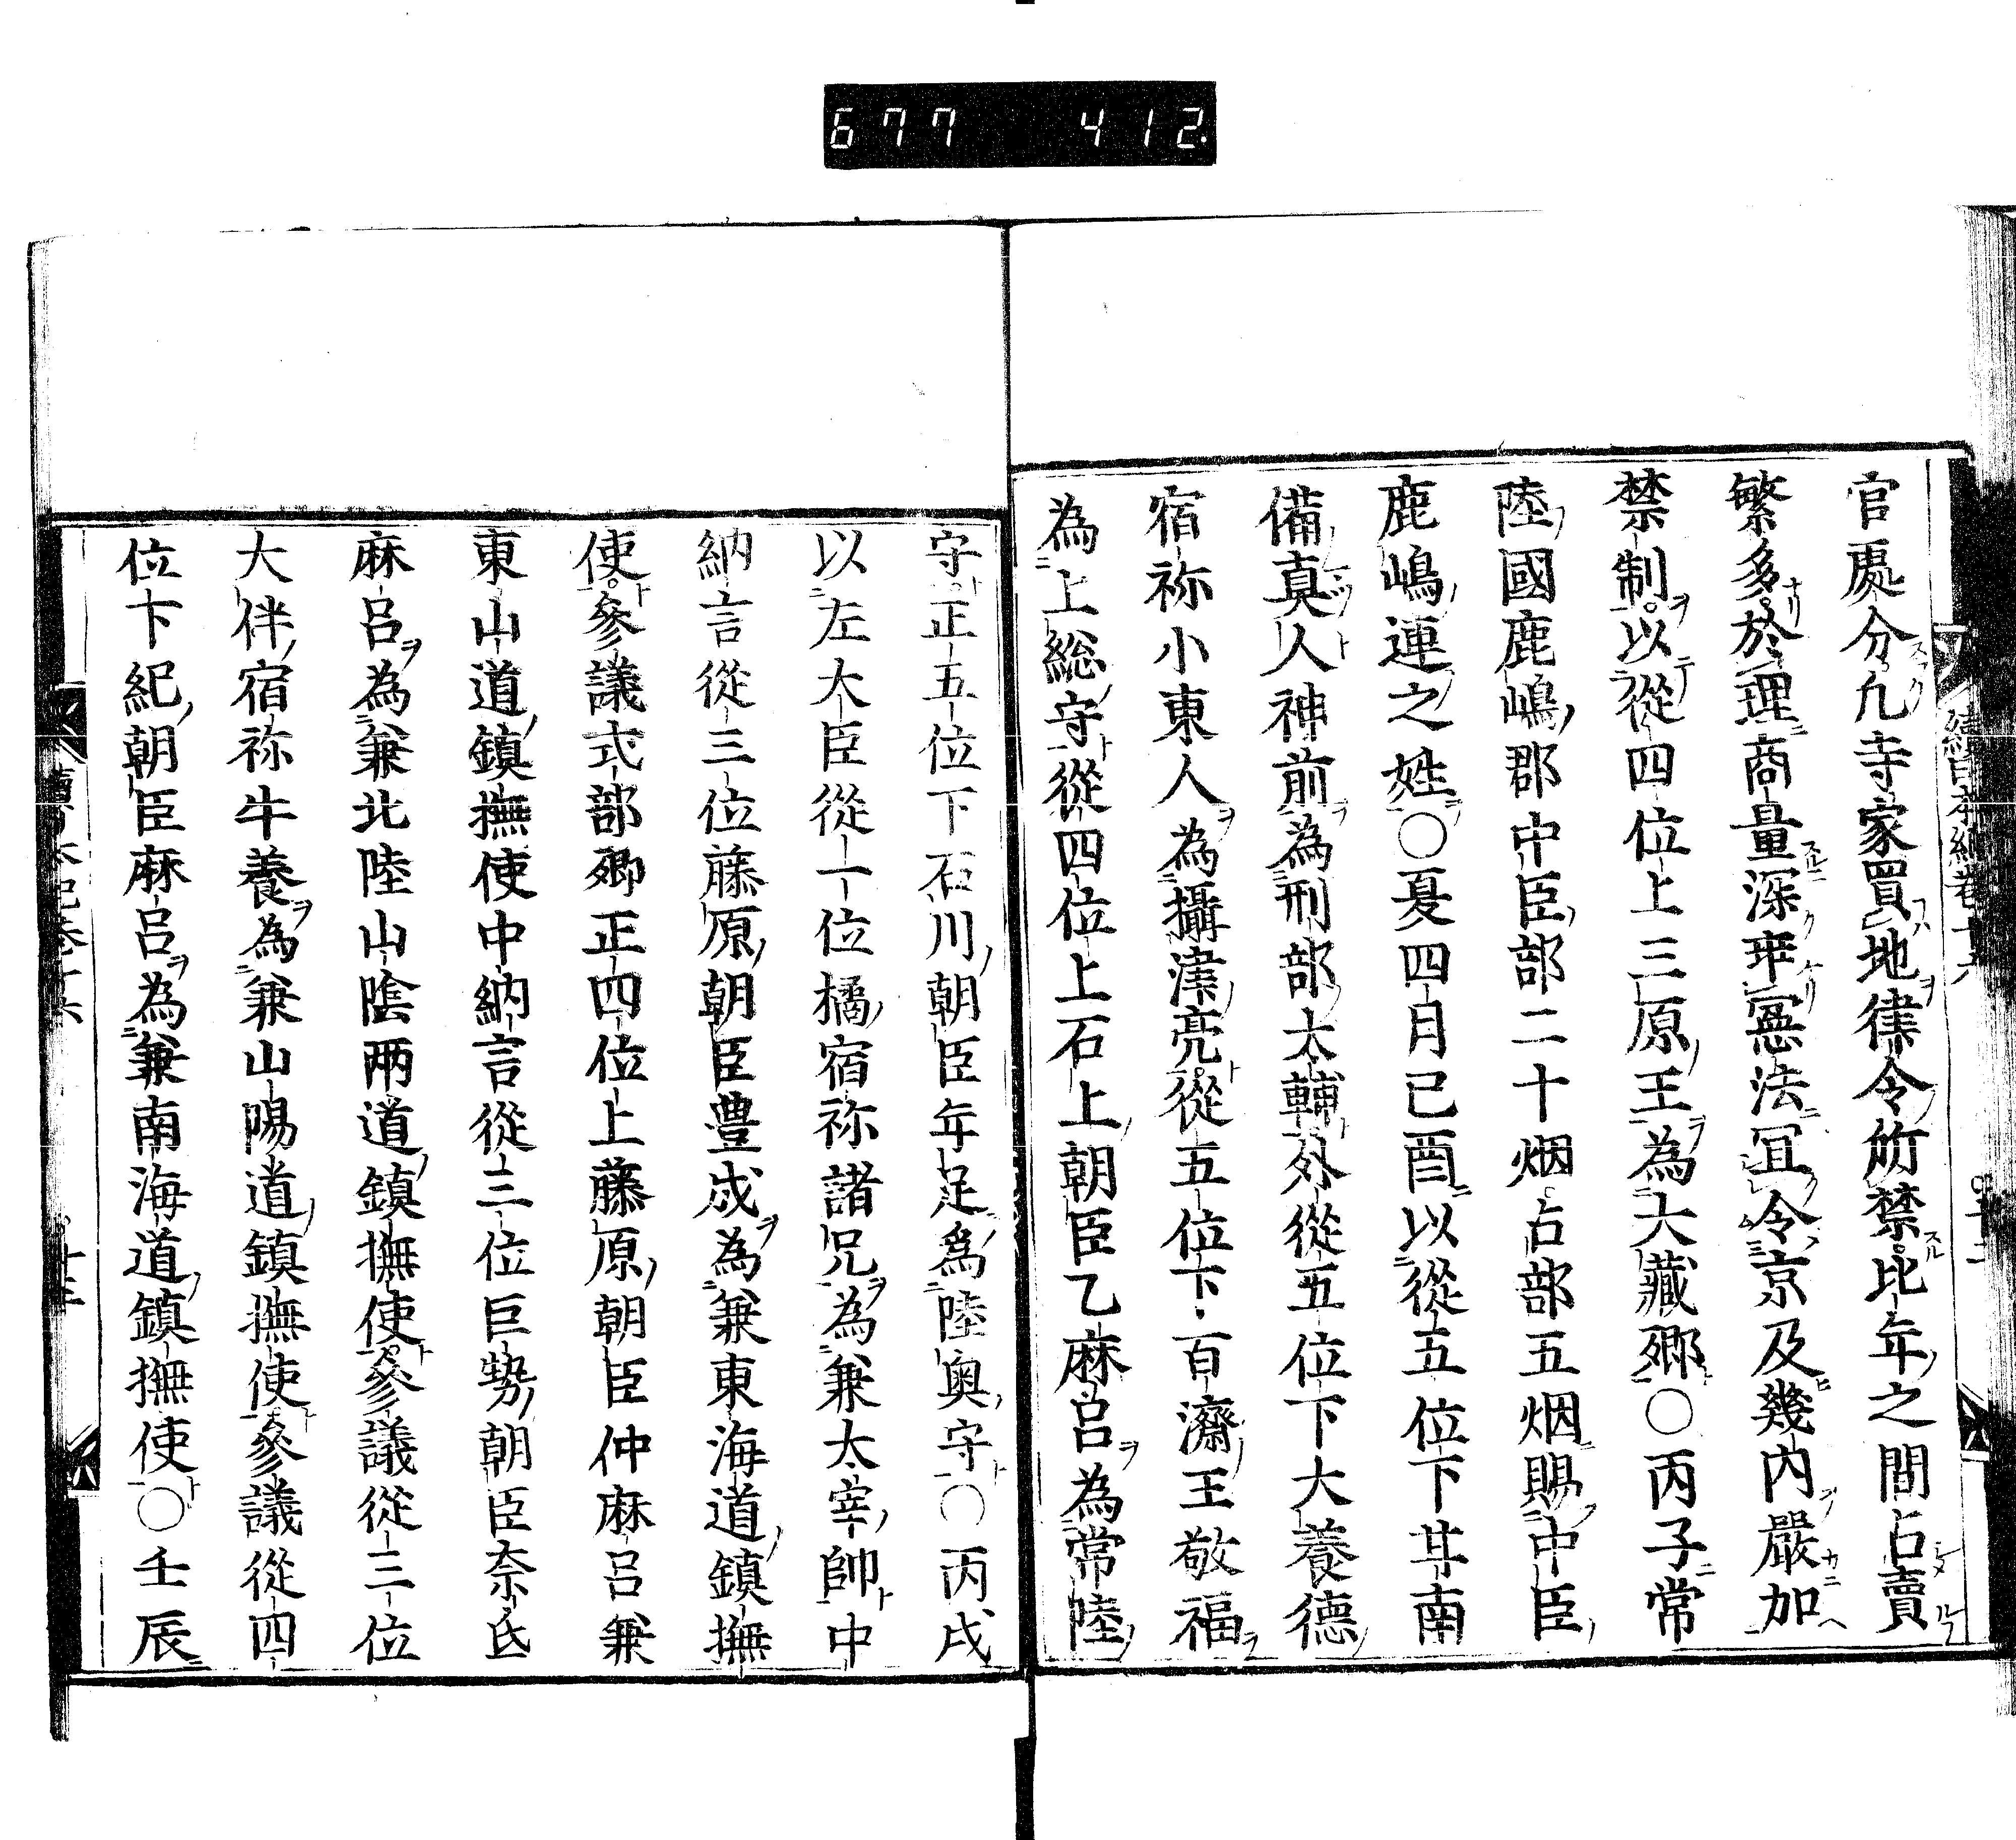 677 412.
官處分凢寺家買地律令所禁比年之間占賣
繁多於理商量深乖憲法冝令京及幾內嚴加
禁制以從四位上三原王為大藏卿〇丙子常
陸國鹿嶋郡中臣部二十烟占部五烟賜中臣
鹿嶋連之姓〇夏四月己酉以從五位下甘南
備真人神前為刑部太輔外從五位下大養德
宿祢小東人為攝津亮從五位下百濟王敬福
為上総守從四位上石上朝臣乙麻呂為常陸
守正五位下石川朝臣年足為陸奧守〇丙戌
以左大臣從一位橘宿祢諸兄為兼太宰帥中
納言從三位藤原朝臣豊成為兼東海道鎮撫
使參議式部卿正四位上藤原朝臣仲麻呂兼
東山道鎮撫使中納言從三位巨勢朝臣奈氐
麻呂為兼北陸山陰兩道鎮撫使參議從三位
大伴宿祢牛養為兼山陽道鎮撫使參議從四
位下紀朝臣麻呂為兼南海道鎮撫使〇壬辰